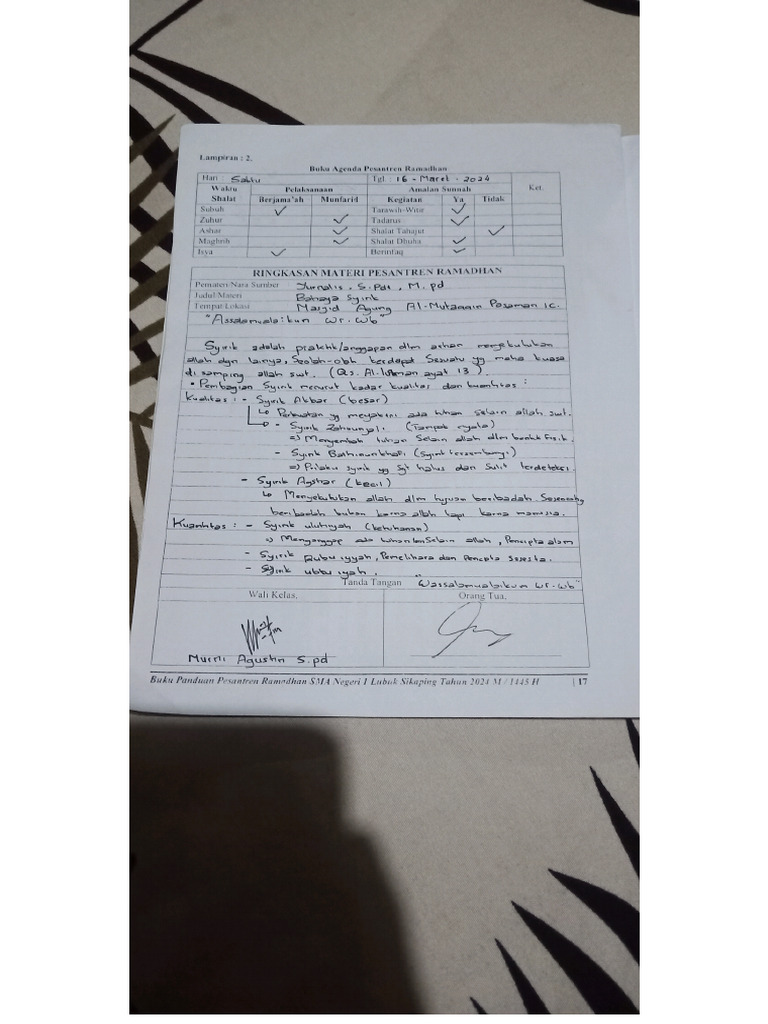 Lampiran : 2.
Buku Agenda Pesantren Ramadhan
Hari : Sabtu Tgl : 16 - Maret - 2024 Ket.
Waktu Shalat Pelaksanaan Amalan Sunnah
Berjama'ah Munfarid Kegiatan Ya Tidak
Subuh ✓ Tarawih-Witir ✓
Zuhur ✓ Tadarus ✓
Ashar ✓ Shalat Tahajut ✓
Maghrib ✓ Shalat Dhuha ✓
Isya ✓ Berinfaq ✓
RINGKASAN MATERI PESANTREN RAMADHAN
Pemateri/Nara Sumber Jurnalis, S.Pdi, M.pd
Judul/Materi Bahaya Syirik
Tempat/Lokasi Masjid Agung Al-Mutaqqin Pasaman ic.
"Assalamualaikum wr.wb"
Syirik adalah praktik/anggapan dlm artian menyekutukan
allah dgn lainya, Seolah-olah terdapat Sesuatu yg maha kuasa
di samping allah swt. (Qs. Al-luqman ayat 13).
• Pembagian Syirik menurut kadar kualitas dan kuantitas :
Kualitas : - Syirik Akbar (besar)
↳ Perbuatan yg meyakini ada tuhan Selain allah swt.
- Syirik Zahirun jali (Tampak nyata)
=> Menyembah tuhan Selain allah dlm bentuk Fisik.
- Syirik Bathinun khafi (Syirik tersembunyi)
=> Prilaku syirik yg Sgt halus dan Sulit terdeteksi.
- Syirik Asghar (kecil)
↳ Menyekutukan allah dlm tujuan beribadah. Seseorang
beribadah bukan karna allah tapi karna manusia.
Kuantitas : - Syirik uluhiyah (ketuhanan)
=> Menganggap ada tuhan lain Selain allah, Pencipta alam
- Syirik Rububiyyah, Pemelihara dan Pencipta
- Syirik ubbudiyah.
Tanda Tangan "Wassalamualaikum wr.wb"
Wali Kelas, Orang Tua,
Murni Agustin S.pd
Buku Panduan Pesantren Ramadhan SMA Negeri 1 Lubuk Sikaping Tahun 2024 M / 1445 H | 17